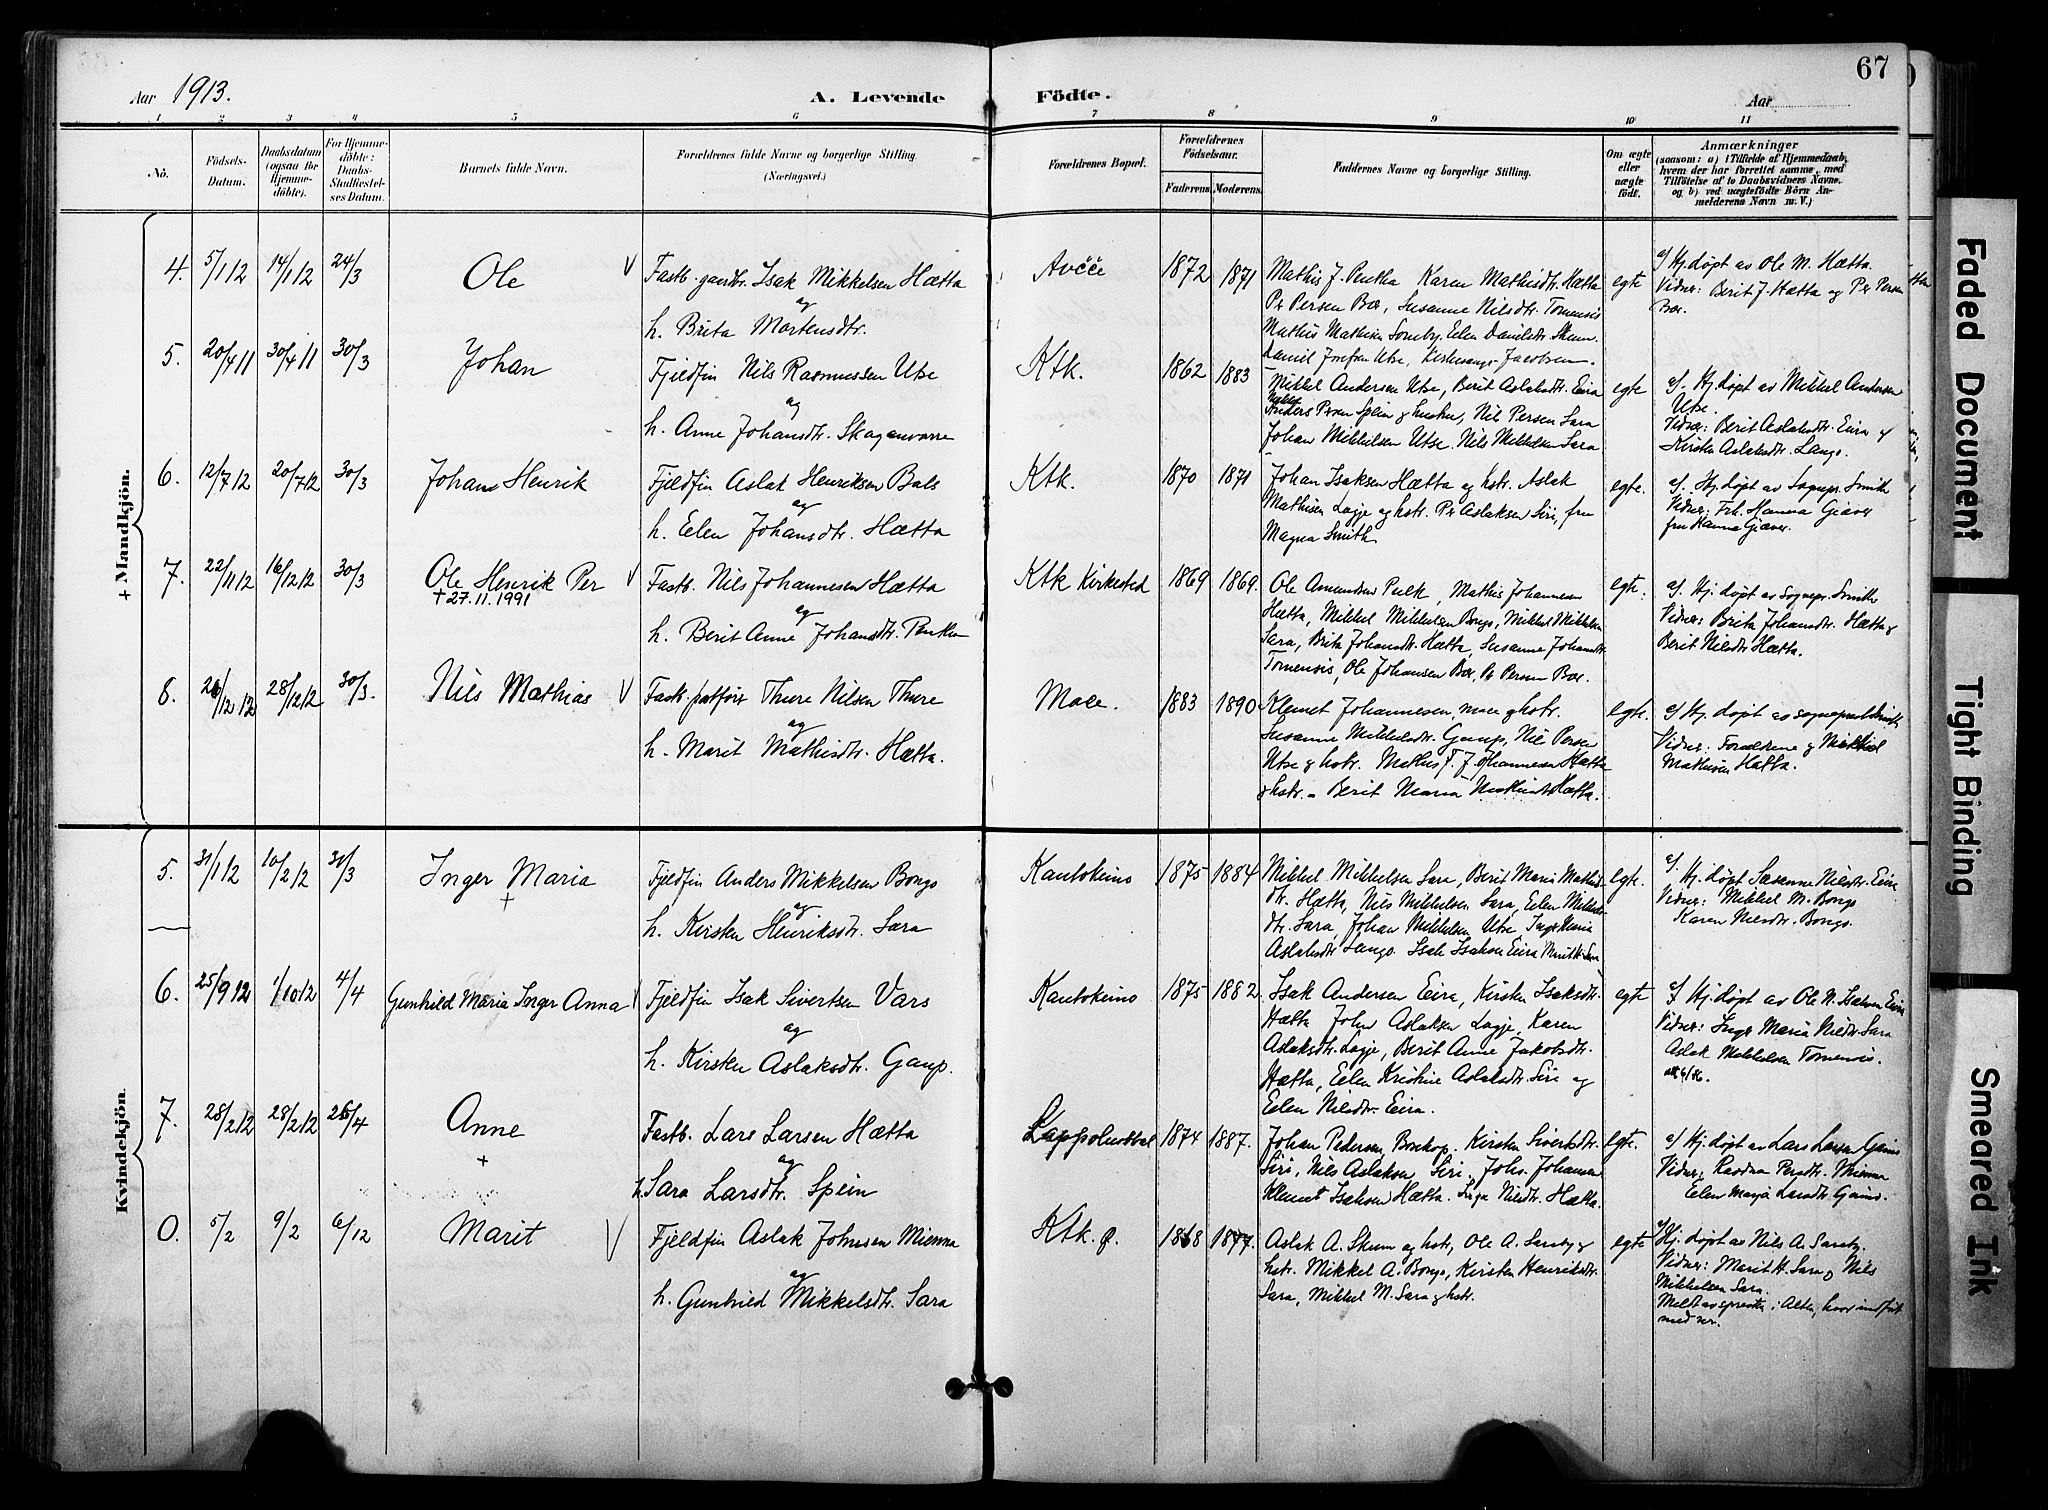 67
Aar 1913.
A. Levende Födte.
Aar
1 2 3 4 5 6 7 8 9 10 11
No.
Födsels-Datum.
Daabsdatum (ogsaa for Hjemme-döbte).
For Hjemme-döbte: Daabs-Stadfæstel-ses Datum.
Barnets fulde Navn.
Forældrenes fulde Navne og borgerlige Stilling.
(Næringsvei.)
Forældrenes Bopæl.
Forældrenes Födselsaar.
Faderens. Moderens.
Faddernes Navne og borgerlige Stilling.
Om ægte eller uægte födt.
Anmærkninger
(saasom: a) i Tilfælde af Hjemmedaab,
hvem der har forrettet samme, med
Tilföielse af to Daabsvidners Navne,
og b) ved uægtefödte Börn An-
melderens Navn m. V.)
+ Mandkjön.
4. 5/1 12 14/1 12 24/3 Ole V
Fastb. gaardbr. Isak Mikkelsen Hætta
og
h. Brita Mortensdtr.
Avčče 1872 1871
Mathis J. Pentha Karen Mathisdtr. Hætta
Per Persen Boe, Susanne Nilsdtr. Tornensis
Mathis Mathisen Somby, Elen Danielsdtr. Skum.
Daniel Josefsen Utse, Kirkesang. Jacobsen.
egte
a/ Hj. døpt av Ole M. Hætta.
Vidner: Berit J. Hætta og Per Persen
Boe.
5. 20/4 11 30/4 11 30/3 Johan
Fjeldfin Nils Rasmussen Utse
og
h. Anne Johansdtr. Skaganvarre
Ktk. 1862 1883
Mikkel Andersen Utse, Berit Aslaksdtr. Eira
Anders Persen Spein og hustru, Nil Persen Sara
Johan Mikkelsen Utse. Nils Mikkelsen Sara
egte
a/. Hj. døpt av Mikkel Andersen
Utse.
Vidner: Berit Aslaksdtr. Eira og
Kirsten Aslaksdtr. Lango.
6. 12/7 12 20/7 12 30/3 Johan Henrik
Fjeldfin Aslak Henriksen Bals
og
h. Elen Johansdtr. Hætta
Ktk. 1870 1871
Johan Isaksen Hætta og hstr. Aslak
Mathisen Logje og hstr. Per Aslaksen Siri, fru
Magna Smith
egte.
a/. Hj. døpt av Sognepr. Smith
Vidner: Frk. Hanna Giæver
fru Hanna Giæver.
7. 22/11 12 16/12 12 30/3 Ole Henrik Per V
+ 27.11.1991
Fastb. Nils Johannesen Hætta
og
h. Berit Anne Johansdtr. Pentha
Ktk Kirkested 1869 1869.
Ole Amundsen Pulk, Mathis Johannesen
Hætta, Mikkel Mikkelsen Bongo, Mikkel Mikkelsen
Sara, Brita Johansdtr. Hætta, Susanne Johansdtr.
Tornensis, Ole Johansen Boe, Per Persen Boe.
egte.
a/. Hj. døpt av Sognepr. Smith
Vidner: Brita Johansdtr. Hætta og
Berit Nilsdtr. Hætta.
8. 26/12 12 28/12 12 30/3. Nils Mathias V
Fastb. postfører Thure Nilsen Thure
og
h. Marit Mathisdtr. Hætta.
Mace. 1883 1890
Klemet Johannesen, mace og hstr.
Susanne Mikkelsdtr. Gaup, Nil Persen
Utse og hstr. Mathis F. Johannesen Hætta
og hstr. Berit Maria Mathisdtr Hætta.
egte.
a/ Hj. døpt av sogneprest Smith
Vidner: Forældrene og Mikkel
Mathisen Hætta.
Kvindekjön.
5. 31/1 12 10/2 12 31/3 Inger Maria
+
Fjeldfin Anders Mikkelsen Bongo
og
h. Kirsten Henriksdtr. Sara
Kautokeino 1875 1884
Mikkel Mikkelsen Sara, Berit Maria Mathis-
dtr. Hætta, Nils Mikkelsen Sara, Elen Mikkels-
dtr. Sara, Johan Mikkelsen Utse, Inger Maria
Aslaksdtr Lango. Isak Isaksen Eira Marit H. Sara
egte.
a/. Hj. døpt Susanne Nilsdtr. Eira
Vidner: Mikkel M. Bongo
Karen Nilsdtr. Bongo.
6. 25/9 12 1/10 12 4/4 Gunhild Maria Inger Anna V
Fjeldfin Isak Sivertsen Vars
og
h. Kirsten Aslaksdtr. Gaup.
Kautokeino 1875 1882.
Isak Andersen Eira, Kirsten Isaksdtr.
Hætta, John Aslaksen Logje, Karen
Aslaksdtr. Logje, Berit Anne Jakobsdtr.
Hætta, Elen Kristine Aslaksdtr. Siri og
Elen Nilsdtr. Eira.
egte
a/ Hj. døpt av Ole N. Isaksen Eira
Vidner: Inger Maria Nilsdtr. Sara
Aslak Mikkelsen Tornensis.
7. 28/2 12 28/2 12 26/4 Anne
+
Fastb. Lars Larsen Hætta
og
h. Sara Larsdtr. Spein
Lappoluobbal 1874 1887.
Johan Pedersen, Bosekop. Kirsten Sivertsdtr.
Siri, Nils Aslaksen Siri. Johs. Johansen
Klemet Isaksen Hætta. Inga Nilsdtr. Hætta.
egte.
a/ Hj. døpt av Lars Larsen Gaino
Vidner: Rasdna Persdtr. Mienna
Elen Marja Larsdtr. Gaino.
0. 5/2 9/2 6/12 Marit V
Fjeldfin Aslak Johnsen Mienna
og
h. Gunhild Mikkelsdtr. Sara
Ktk. p. 1868 1877.
Aslak A. Skum og hstr, Ole A. Sareby og
hstr. Mikkel A. Bongo, Kirsten Henriksdtr.
Sara, Mikkel M. Sara og hstr.
egte
a/ Hj. døpt av Nils A. Sareby.
Vidner: Marit H. Sara og Nils
Mikkelsen Sara.
Meldt av presten i Alta, hvor indført
med nr.
Faded Document
Tight Binding
Smeared Ink